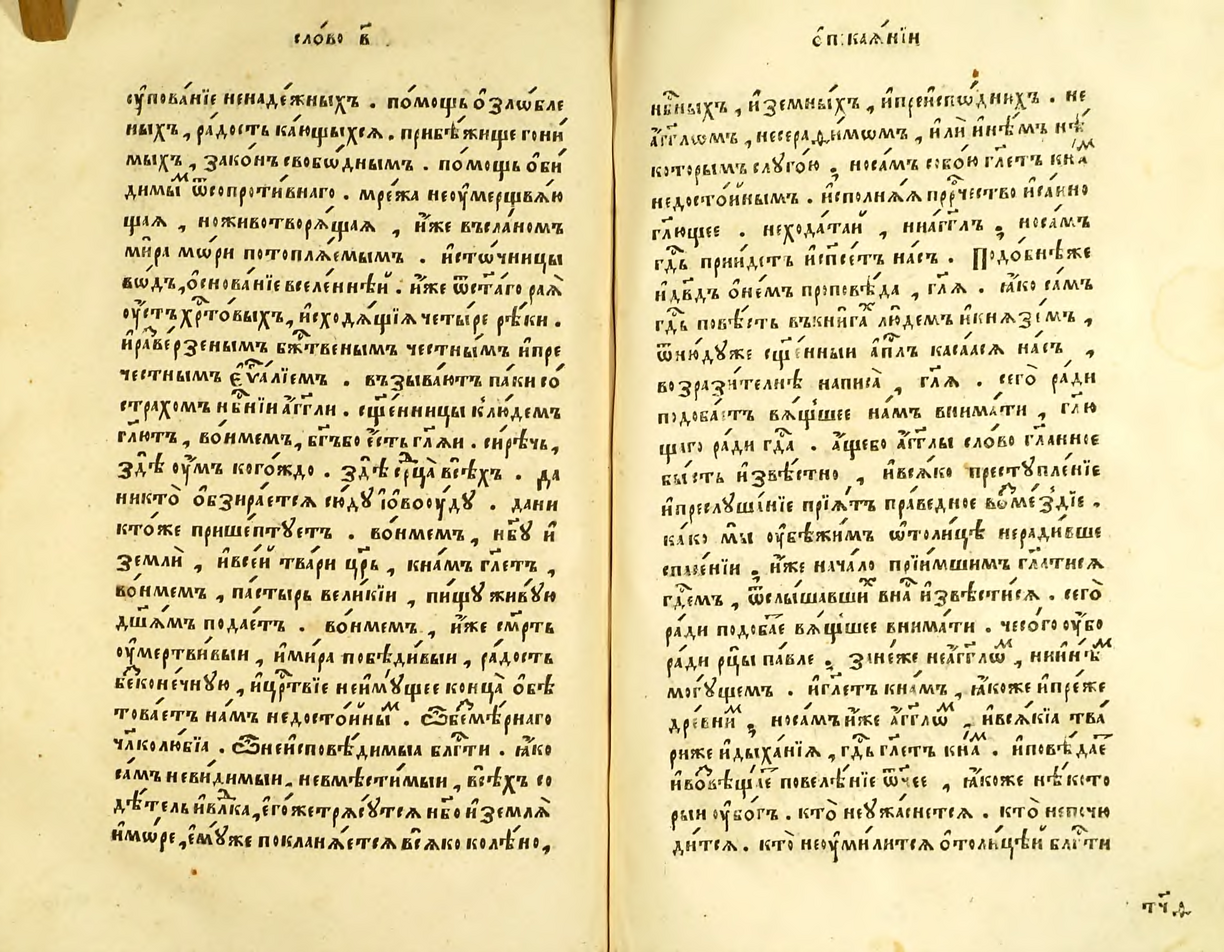 сло́во в҃
ѹ҆пова́нїе ненаде́жныхъ . по́мощь ѻ҆ѕло́бле
ныхъ , ра́дость ка́ющыхсѧ . прибѣ́жище гони́
мыхъ , зако́нъ свобѡ́днымъ . по́мощь ѻ҆би́
димыⷨ ѿсопроти́внаго . мре́жа неѹ҆мерщвлѧ́ю
щаѧ , ноживотворѧ́щаѧ , и҆́же въсла́номъ
ми́ра мо́ри потоплѧ́емымъ . и҆сто́чницы
во́дъ , ѻ҆снова́нїе вселе́ннѣй . и҆́же ѿст҃а́го раѧ̀
ѹ҆стъ хрⷭ҇то́выхъ , и҆сходѧ́щїѧ четы́ре рѣ́ки .
и҆ра́зве́рзенымъ бжⷭ҇твенымъ честны́мъ и҆пре
честны́мъ є҆ѵⷢ҇а́лїемъ . възыва́ютъ па́ки со́
стра́хомъ нбⷭ҇нїи а҆́гг҃ли . сщ҃е́нницы к̾лю́демъ
гл҃ютъ , во́нмемъ , бг҃ъбо є҆́сть гл҃ѧи . си́рѣчь ,
здѣ̀ ѹ҆́мъ кого́ждо . здѣ̀ срⷣца всѣ́хъ . да
никто̀ ѻ҆бзира́етсѧ сю́дꙋ і҆ово́ѹ҆дꙋ . дани
кто́же пришепꙋ́тъ . во́нмемъ , нб҃ꙋ и҆
землѝ , и҆все́й тва́ри цр҃ь , кна́мъ гл҃етъ ,
во́нмемъ , па́стырь вели́кїи , пи́щꙋ живꙋ́ю
дш҃а́мъ подае́тъ . во́нмемъ , и҆́же сме́рть
ѹ҆мертви́выи , и҆ми́ра побѣди́выи , ра́дость
беⷥконе́чнꙋю , и҆црⷭ҇твїе неимꙋ́щее конца̀ ѻ҆бѣ
това́етъ на́мъ недосто́йныⷨ . ѽбеⷥмѣ́рнаго
чл҃колю́бїа . ѽнеисповѣ́димыа блгⷣти . ꙗ҆́ко
са́мъ неви́димыи , невмѣсти́мыи , всѣ́хъ со
дѣ́тель и҆влⷣка , є҆го́же трѧсꙋ́тсѧ нб҃о и҆землѧ̀
и҆мо́ре , є҆мꙋ́же покланѧ́етсѧ всѧ́ко колѣ́но ,
ѻ҆ п:каѧ́нїи
нбⷭ҇ныхъ , и҆земны́хъ , и҆преиспо́днихъ . не
а҆́гг҃ломъ , несерафи́момъ , и҆лѝ и҆нѣ́мъ нѣ́
кото́рымъ слꙋго́ю , носа́мъ собо́ю гл҃етъ кнаⷨ
недосто́йнымъ . и҆сполнѧ́ѧ прⷪ҇ро́чество и҆са́ино
гл҃ющее . неходатай , ниа҆́гг҃лъ , носа́мъ
гдⷭ҇ь прїи́детъ и҆сп҃се́тъ на́съ . Подо́бнѣже
и҆дв҃дъ ѻ҆не́мъ проповѣ́да , гл҃ѧ . ꙗ҆́ко са́мъ
гдⷭ҇ь повѣ́сть въкни́гаⷯ лю́демъ и҆кнѧзе́мъ ,
ѿню́дꙋже сщ҃е́нныи а҆пⷭ҇лъ каса́ѧсѧ на́съ ,
возрази́телнѣ написа̀ , гл҃ѧ . сего̀ ра́ди
подоба́етъ вѧ́щшее на́мъ внима́ти , гл҃ю
щаго ра́ди гдⷭ҇а . а҆́щебо а҆́гг҃лы сло́во гл҃анное
бы́сть и҆звѣ́стно , и҆всѧ́ко престꙋпле́нїе
и҆преслꙋша́нїе прїѧ́тъ пра́ведное воⷥме́здїе ,
ка́ко мы̀ ѹ҆бѣжи́мъ ѡ҆толи́цѣ неради́вше
сп҃се́нїи , и҆́же нача́ло прїи́мшимъ гл҃атисѧ
гдⷭ҇емъ , ѿслы́шавшиⷯ вна́ и҆звѣсти́сѧ . сего̀
ра́ди подоба́е вѧ́щшее внима́ти . чесо́го ѹ҆́бо
ра́ди рцы̀ па́вле , зане́же неа҆́гг҃лоⷨ , нии҆нѣⷨ
могꙋ́щемъ . и҆гл҃етъ кна́мъ , ꙗ҆́коже и҆пре́же
дре́вниⷨ , носа́мъ и҆́же а҆́гг҃лоⷨ , и҆всѧ́кїа тва́
риже и҆дыха́нїѧ , гдⷭ҇ь гл҃етъ кнаⷨ . и҆повѣ́дае
и҆воⷥвѣща́е повелѣ́нїе ѿч҃ее , ꙗ҆́коже нѣ́кото
рыи ѹ҆бо́гъ . кто̀ неѹ҆жа́снетсѧ . кто̀ непочю
ди́тсѧ . кто̀ неѹ҆мили́тсѧ ѻ҆толи́цѣй блгⷣти